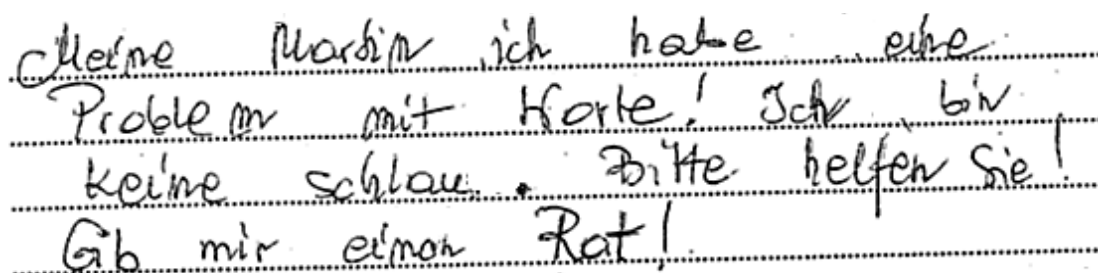 Meine Martin ich habe eine
Problem mit Worte! Ich bin
keine schlau. Bitte helfen Sie!
Gib mir einen Rat!